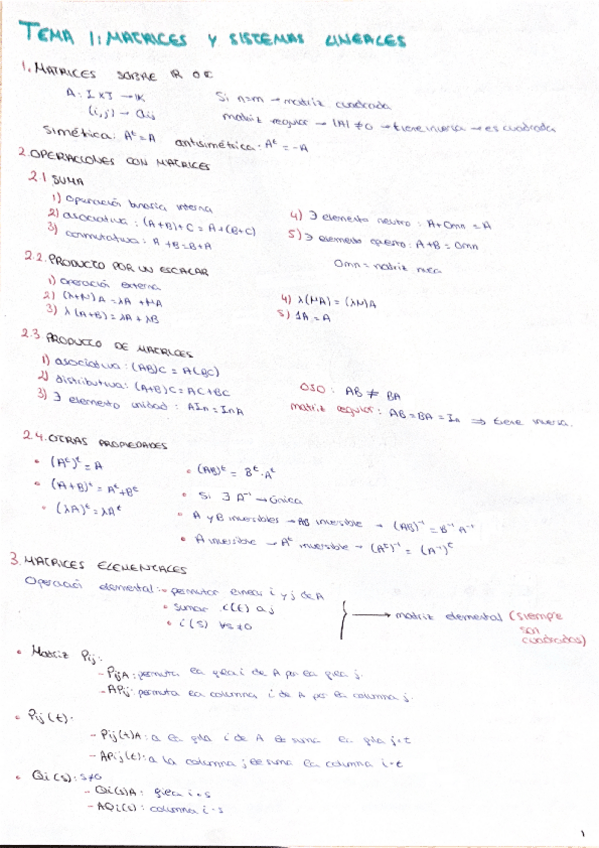 TEMA 1: MATRICES Y SISTEMAS LINEALES
1. MATRICES SOBRE IR O C
A: I x J → IK
(i,j) → aij
Si n=m → matriz cuadrada
matriz regular → |A| ≠ 0 → tiene inversa → es cuadrada
Simétrica: Aᵗ = A antisimétrica: Aᵗ = -A
2. OPERACIONES CON MATRICES
2.1 SUMA
1) Operación binaria interna
2) asociativa: (A+B)+C = A+(B+C)
3) conmutativa: A+B = B+A
4) ∃ elemento neutro: A+Omn = A
5) ∃ elemento opuesto: A+B = Omn
Omn = matriz nula
2.2. PRODUCTO POR UN ESCALAR
1) operación externa
2) (λ+μ)A = λA + μA
3) λ(A+B) = λA + λB
4) λ(μA) = (λμ)A
5) 1A = A
2.3 PRODUCTO DE MATRICES
1) asociativa: (AB)C = A(BC)
2) distributiva: (A+B)C = AC+BC
3) ∃ elemento unidad: AIn = InA
OJO: AB ≠ BA
matriz regular: AB = BA = In ⇒ tiene inversa.
2.4. OTRAS PROPIEDADES
• (Aᵗ)ᵗ = A
• (A+B)ᵗ = Aᵗ+Bᵗ
• (λA)ᵗ = λAᵗ
• (AB)ᵗ = Bᵗ·Aᵗ
• Si ∃ A⁻¹ → única
• A y B inversibles → AB inversible → (AB)⁻¹ = B⁻¹ A⁻¹
• A inversible → Aᵗ inversible → (Aᵗ)⁻¹ = (A⁻¹)ᵗ
3. MATRICES ELEMENTALES
Operación elemental: • permutar lineas i y j de A
• sumar i(t) a j
• i(s) ∀s≠0
→ matriz elemental (siempre
son
cuadradas)
• Matriz Pij:
- PijA: permuta la fila i de A por la fila j.
- APij: permuta la columna i de A por la columna j.
• Pij(t):
- Pij(t)A: a la fila i de A le suma la fila j·t
- APij(t): a la columna j le suma la columna i·t
• Qi(s): s≠0
- Qi(s)A: fila i·s
- AQi(s): columna i·s
1